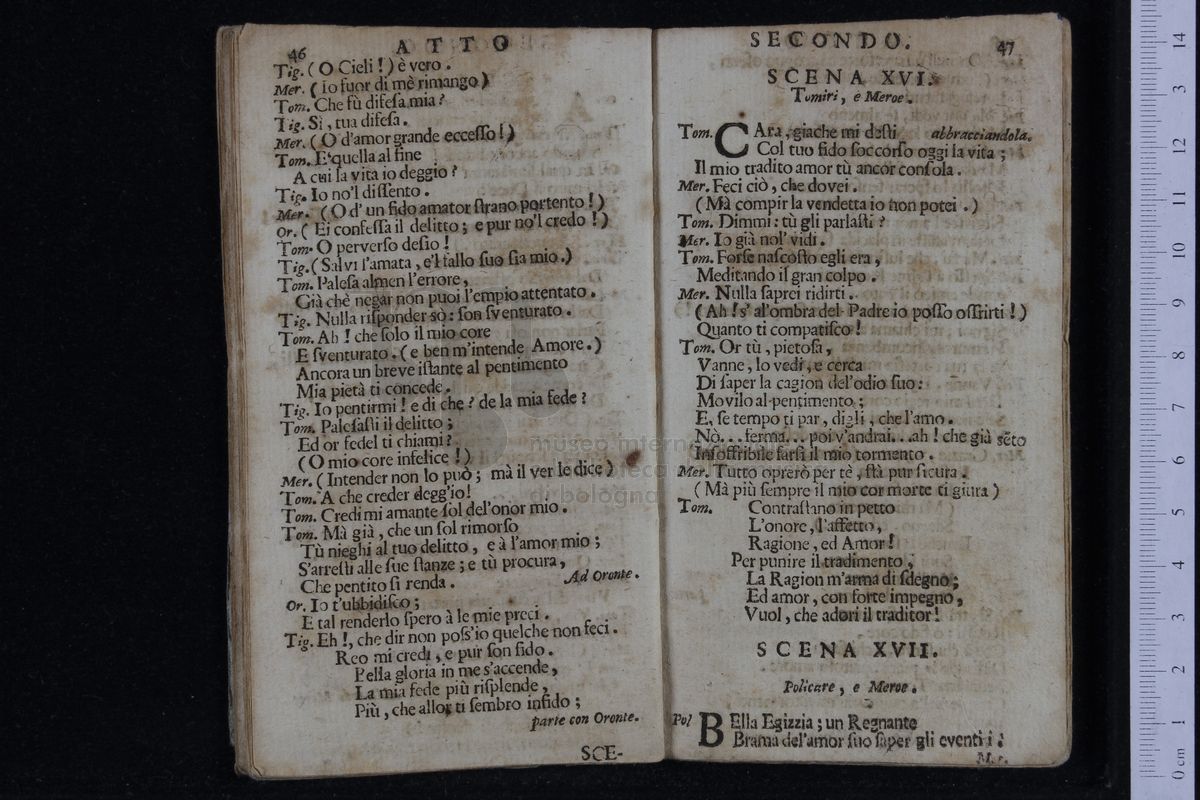 46 ATTO
Tig. (O Cieli!) è vero.
Mer. (Io fuor di mè rimango)
Tom. Che fù difesa mia?
Tig. Sì, tua difesa.
Mer. (O d'amor grande eccesso!)
Tom. E quella al fine
A cui la vita io deggio?
Tig. Io no'l dissento.
Mer. (O d' un fido amator strano portento!)
Or. (Ei confessa il delitto; e pur no'l credo!)
Tom. O perverso desio!
Tig. (Salvi l'amata, e'l fallo suo sia mio.)
Tom. Palesa almen l'errore,
Già chè negar non puoi l'empio attentato.
Tig. Nulla risponder sò: son sventurato.
Tom. Ah! che solo il mio core
E sventurato. (e ben m'intende Amore.)
Ancora un breve istante al pentimento
Mia pietà ti concede.
Tig. Io pentirmi! e di che? de la mia fede?
Tom. Palesasti il delitto;
Ed or fedel ti chiami?
(O mio core infelice!)
Mer. (Intender non lo può; mà il ver le dice)
Tom. A che creder degg'io!
Tom. Credi mi amante sol del'onor mio.
Tom. Mà già, che un sol rimorso
Tù nieghi al tuo delitto, e à l'amor mio;
S'arresti alle sue stanze; e tù procura,
Che pentito si renda. Ad Oronte.
Or. Io t'ubbidisco;
E tal renderlo spero à le mie preci.
Tig. Eh!, che dir non poss'io quelche non feci.
Reo mi credi, e pur son fido.
Pella gloria in me s'accende,
La mia fede più risplende,
Più, che allor ti sembro infido;
parte con Oronte.
SCE-
SECONDO. 47
SCENA XVI.
Tomiri, e Meroe.
Tom. CAra, giache mi desti abbracciandola.
Col tuo fido soccorso oggi la vita;
Il mio tradito amor tù ancor consola.
Mer. Feci ciò, che dovei.
(Mà compir la vendetta io non potei.)
Tom. Dimmi: tù gli parlasti?
Mer. Io già nol' vidi.
Tom. Forse nascosto egli era,
Meditando il gran colpo.
Mer. Nulla saprei ridirti.
(Ah! s' al'ombra del Padre io posso offrirti!)
Quanto ti compatisco!
Tom. Or tù, pietosa,
Vanne, lo vedi, e cerca
Di saper la cagion del'odio suo:
Movilo al pentimento;
E, se tempo ti par, digli, che l'amo.
Nò... ferma... poi v'andrai...ah! che già sẽto
Insoffribile farsi il mio tormento.
Mer. Tutto oprerò per tè, stà pur sicura.
(Mà più sempre il mio cor morte ti giura)
Tom. Contrastano in petto
L'onore, l'affetto,
Ragione, ed Amor!
Per punire il tradimento,
La Ragion m'arma di sdegno;
Ed amor, con forte impegno,
Vuol, che adori il traditor!
SCENA XVII.
Policare, e Meroe.
Pol BElla Egizzia; un Regnante
Brama del'amor suo saper gli eventi i:
Mer.
museo internazionale
biblioteca
di bologna